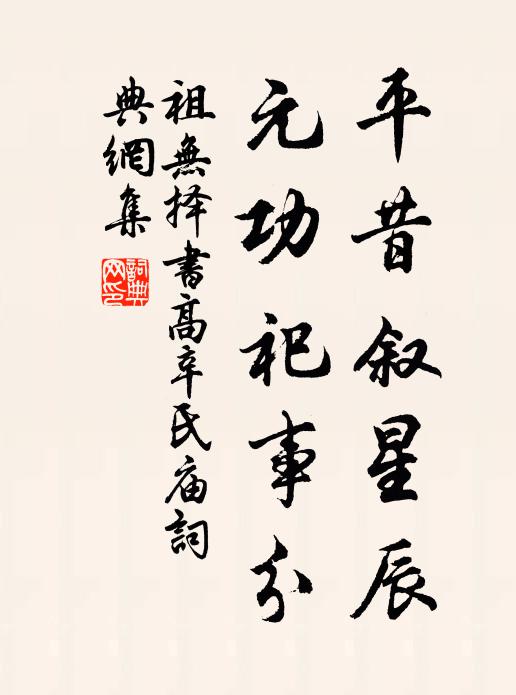 平昔叙星辰
元功祀事分
祖無择書高辛氏庙詞
典網集
詞典網印